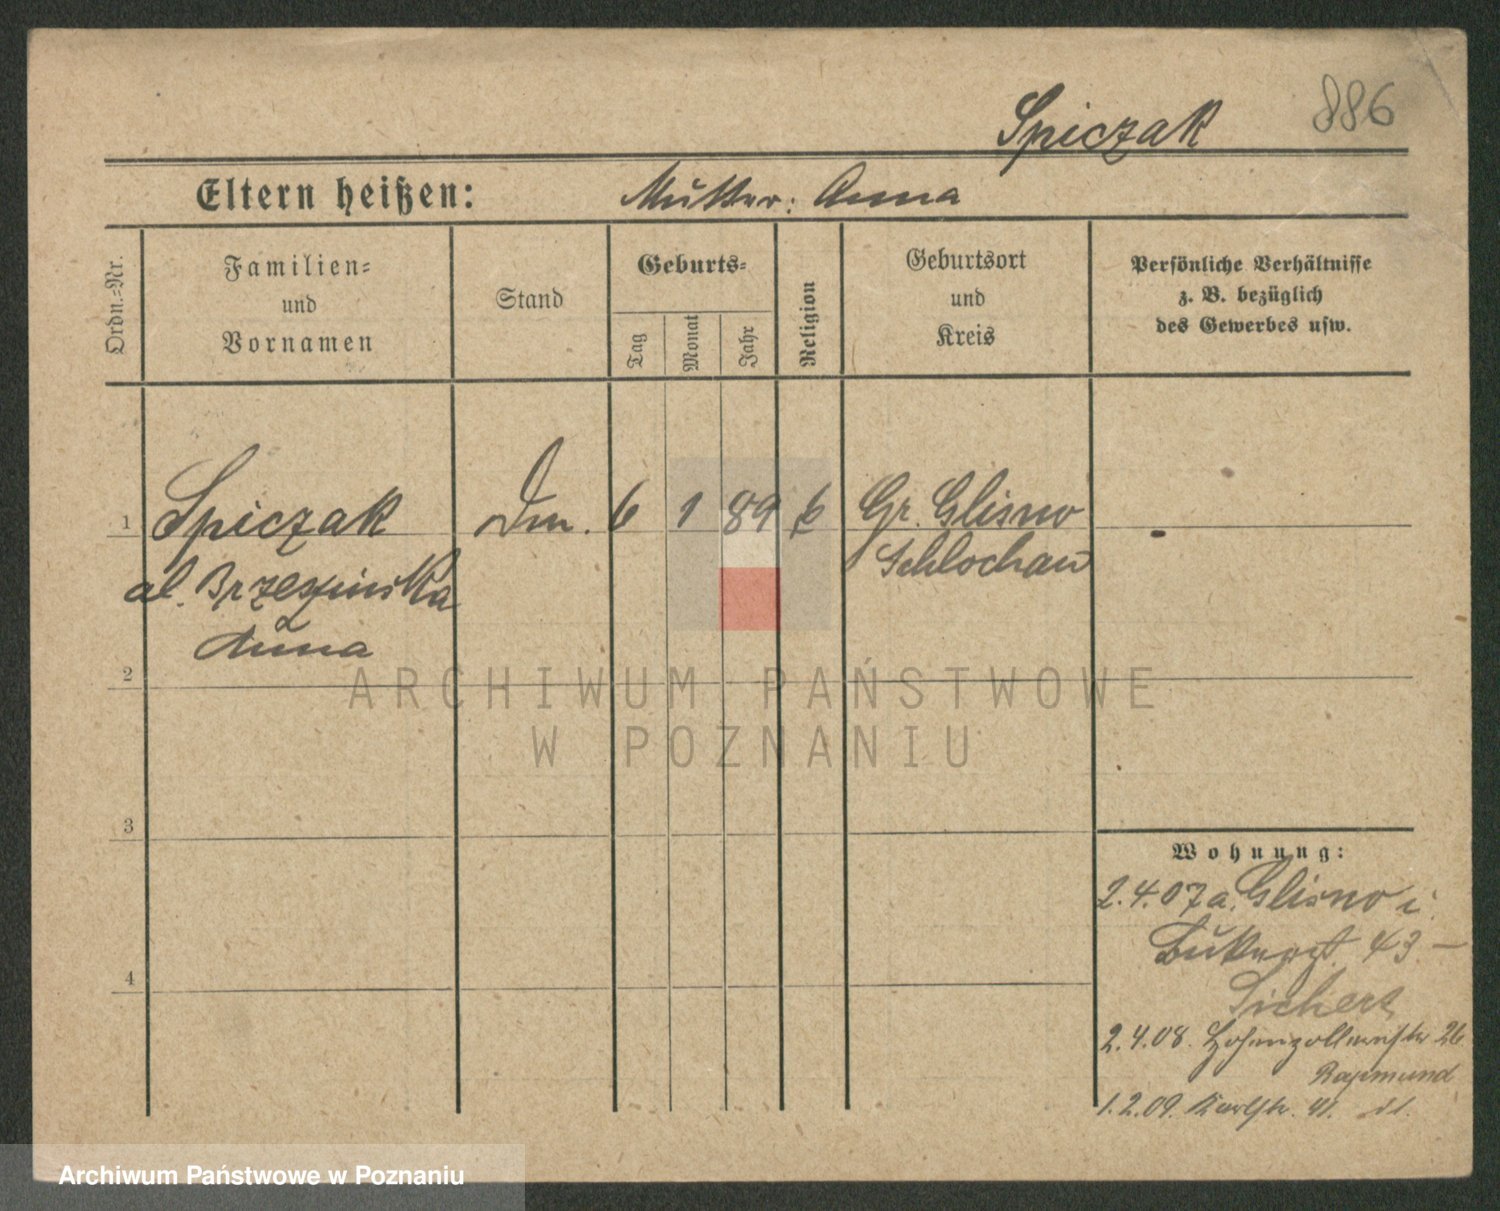 886
Spiczak
Eltern heißen: Mutter: Anna
Ordn.-Nr.
Familien-
und
Vornamen
Stand
Geburts-
Tag
Monat
Jahr
Religion
Geburtsort
und
Kreis
Persönliche Verhältnisse
z. B. bezüglich
des Gewerbes usw.
1 Spiczak 6 1 89 Gr. Glisno
Schlochau
al. Brzezinska
Anna
2
ARCHIWUM PAŃSTWOWE
W POZNANIU
3
Wohnung:
2.4.07 a. Glisno i.
43 –
4
2.4.08. Hohenzollernstr 26
1.2.09. Karlstr. 41.
Archiwum Państwowe w Poznaniu